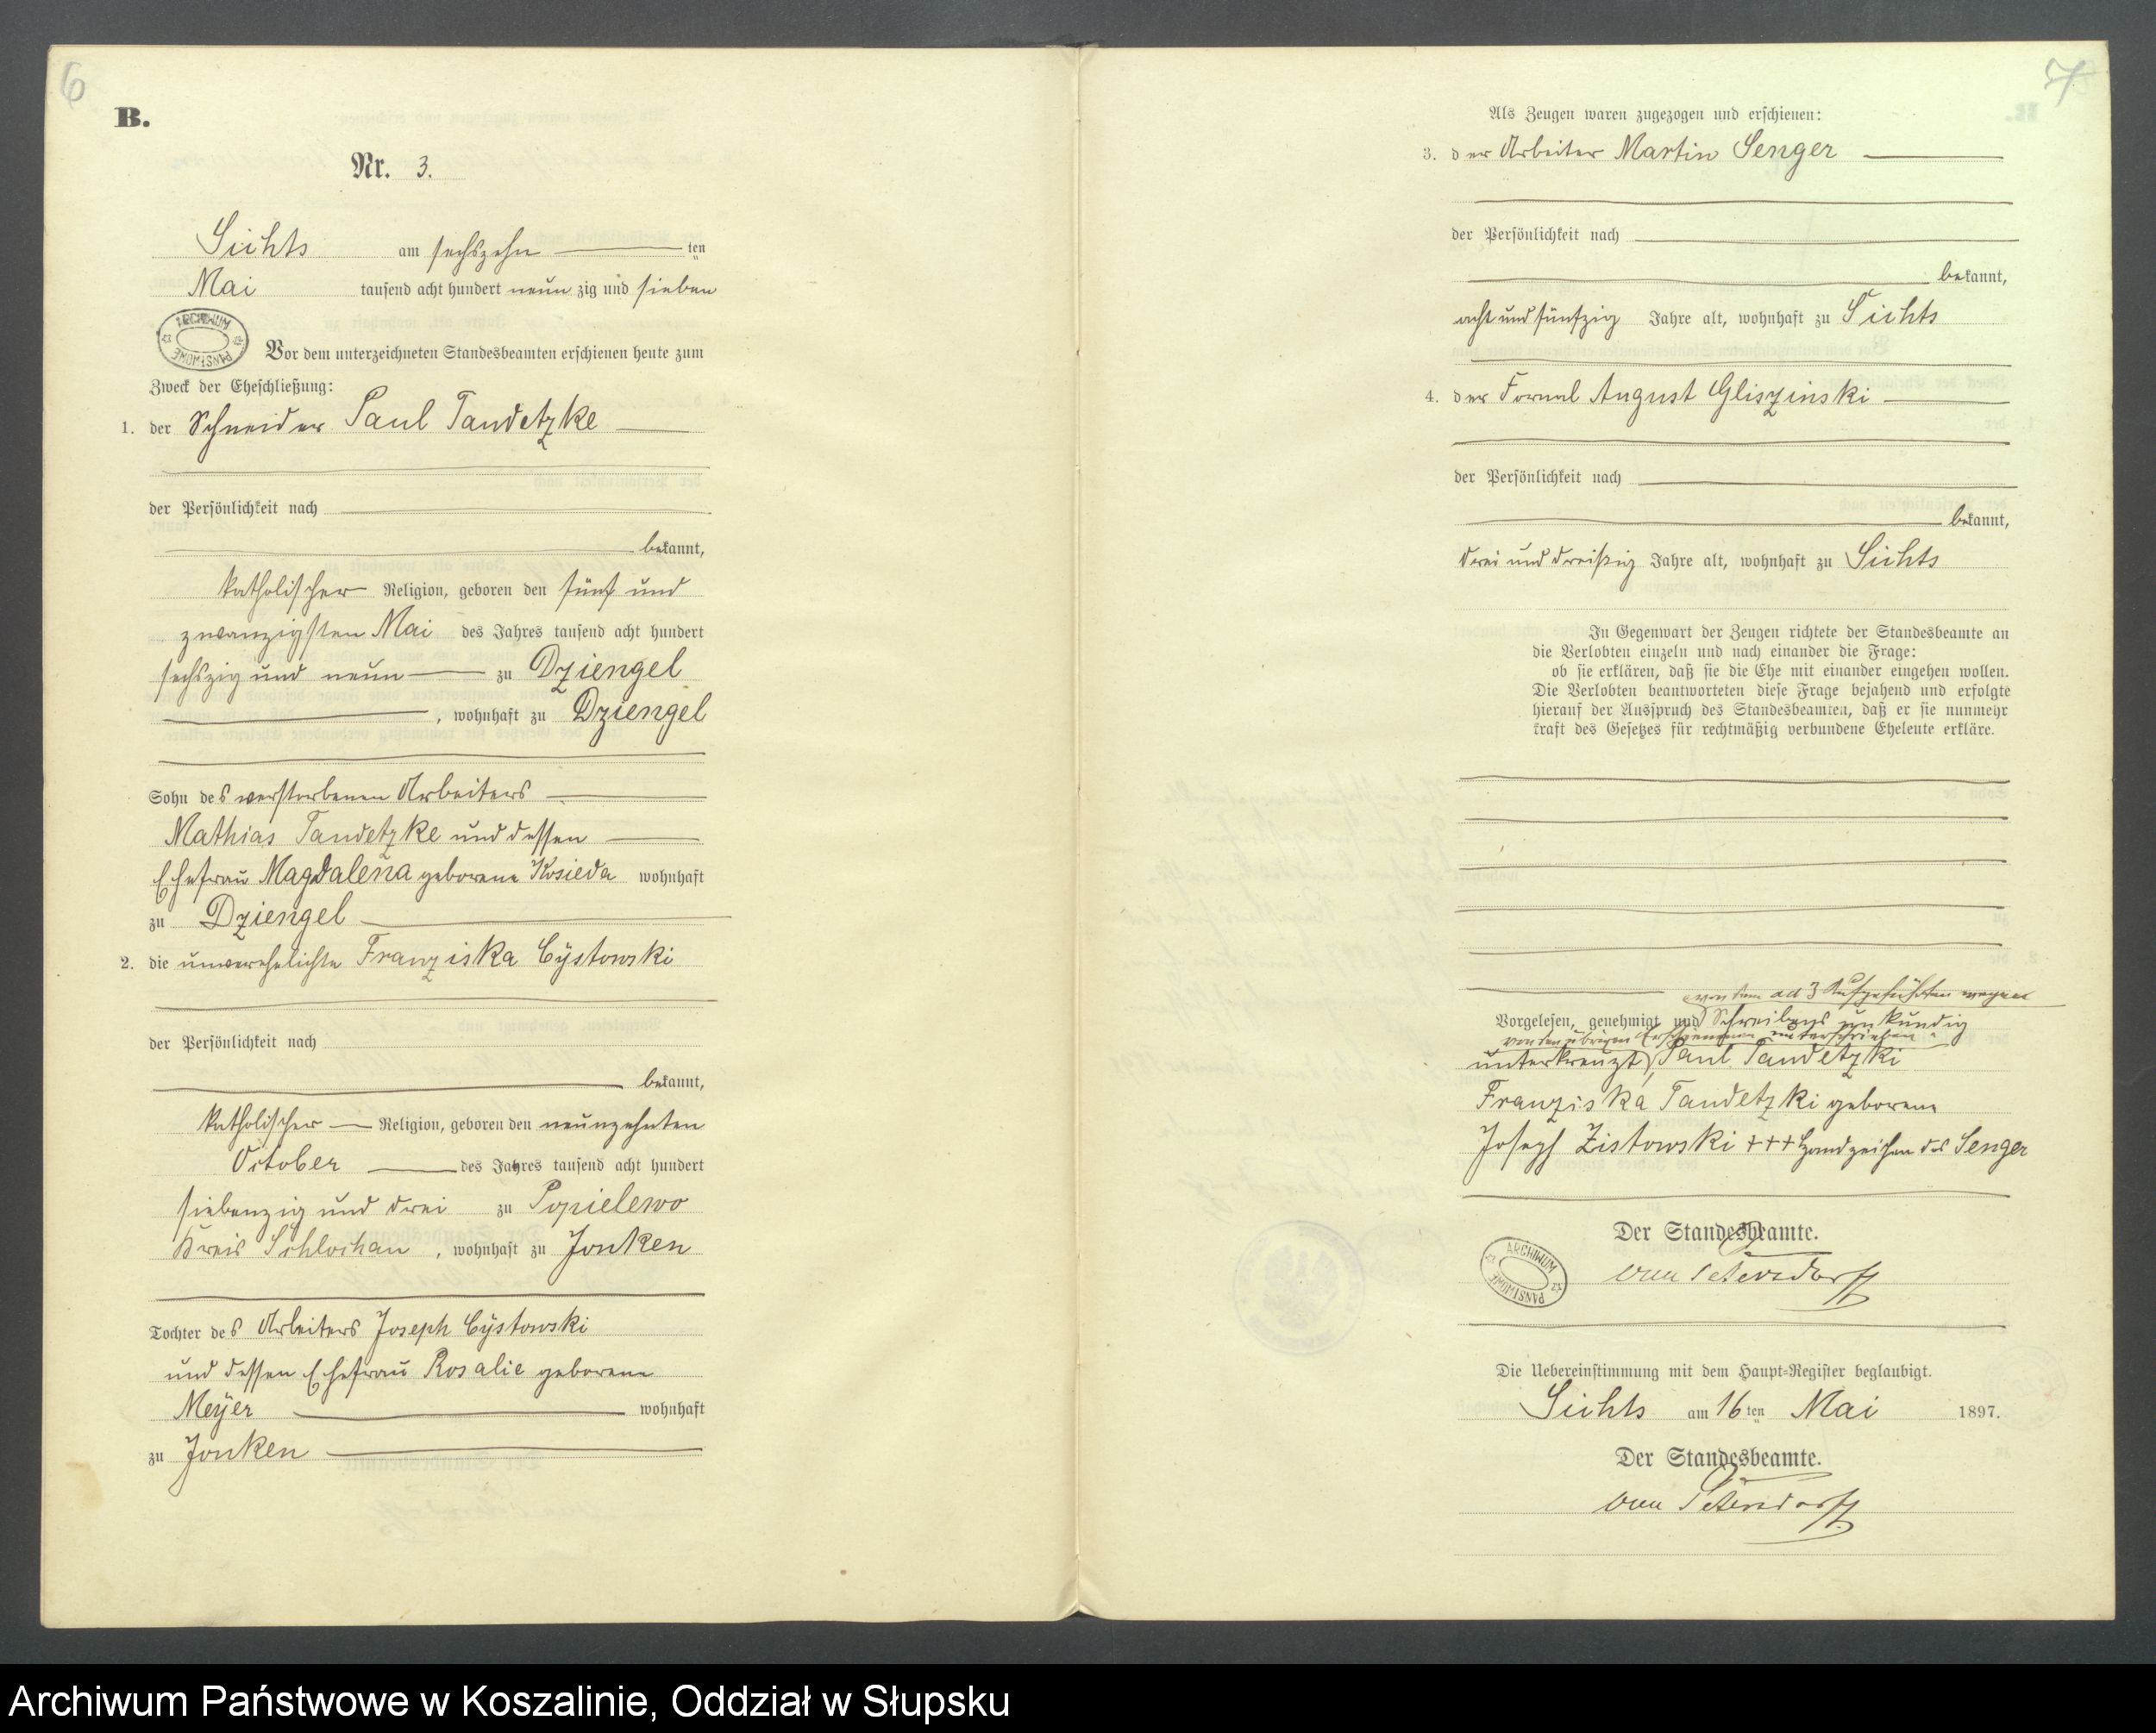 6
B.
Nr. 3.
Sichts am sechszehn ten
Mai tausend acht hundert neun zig und sieben
ARCHIWUM PAŃSTWOWE
Vor dem unterzeichneten Standesbeamten erschienen heute zum
Zweck der Eheschließung:
1. der Schneider Paul Tandetzke
der Persönlichkeit nach
bekannt,
katholischer Religion, geboren den fünf und
zwanzigsten Mai des Jahres tausend acht hundert
sechszig und neun zu Dziengel
, wohnhaft zu Dziengel
Sohn des verstorbenen Arbeiters
Mathias Tandetzke und dessen
Ehefrau Magdalena geborene Kosieda wohnhaft
zu Dziengel
2. die unverehelichte Franziska Cÿstowski
der Persönlichkeit nach
bekannt,
katholischer Religion, geboren den neunzehnten
October des Jahres tausend acht hundert
siebenzig und drei zu Popielewo
Kreis Schlochau, wohnhaft zu Jonken
Tochter des Arbeiters Joseph Cÿstowski
und dessen Ehefrau Rosalie geborene
Meÿer wohnhaft
zu Jonken
7
Als Zeugen waren zugezogen und erschienen:
3. der Arbeiter Martin Senger
der Persönlichkeit nach
bekannt,
acht und fünfzig Jahre alt, wohnhaft zu Sichts
4. der Fornal August Gliszinski
der Persönlichkeit nach
bekannt,
drei und dreißig Jahre alt, wohnhaft zu Sichts
In Gegenwart der Zeugen richtete der Standesbeamte an
die Verlobten einzeln und nach einander die Frage:
ob sie erklären, daß sie die Ehe mit einander eingehen wollen.
Die Verlobten beantworteten diese Frage bejahend und erfolgte
hierauf der Ausspruch des Standesbeamten, daß er sie nunmehr
kraft des Gesetzes für rechtmäßig verbundene Eheleute erkläre.
von dem ad 3 Aufgeführten wegen
Vorgelesen, genehmigt und Schreibens unkundig
von den übrigen Erschienenen unterschrieben
unterkreuzt, Paul Tandetzki
Franziska Tandetzki geborene
Joseph Zistowski +++ Handzeichen des Senger
Der Standesbeamte.
ARCHIWUM PAŃSTWOWE
von Petersdorff
Die Uebereinstimmung mit dem Haupt-Register beglaubigt.
Sichts am 16 ten Mai 1897.
Der Standesbeamte.
von Petersdorff
Archiwum Państwowe w Koszalinie, Oddział w Słupsku